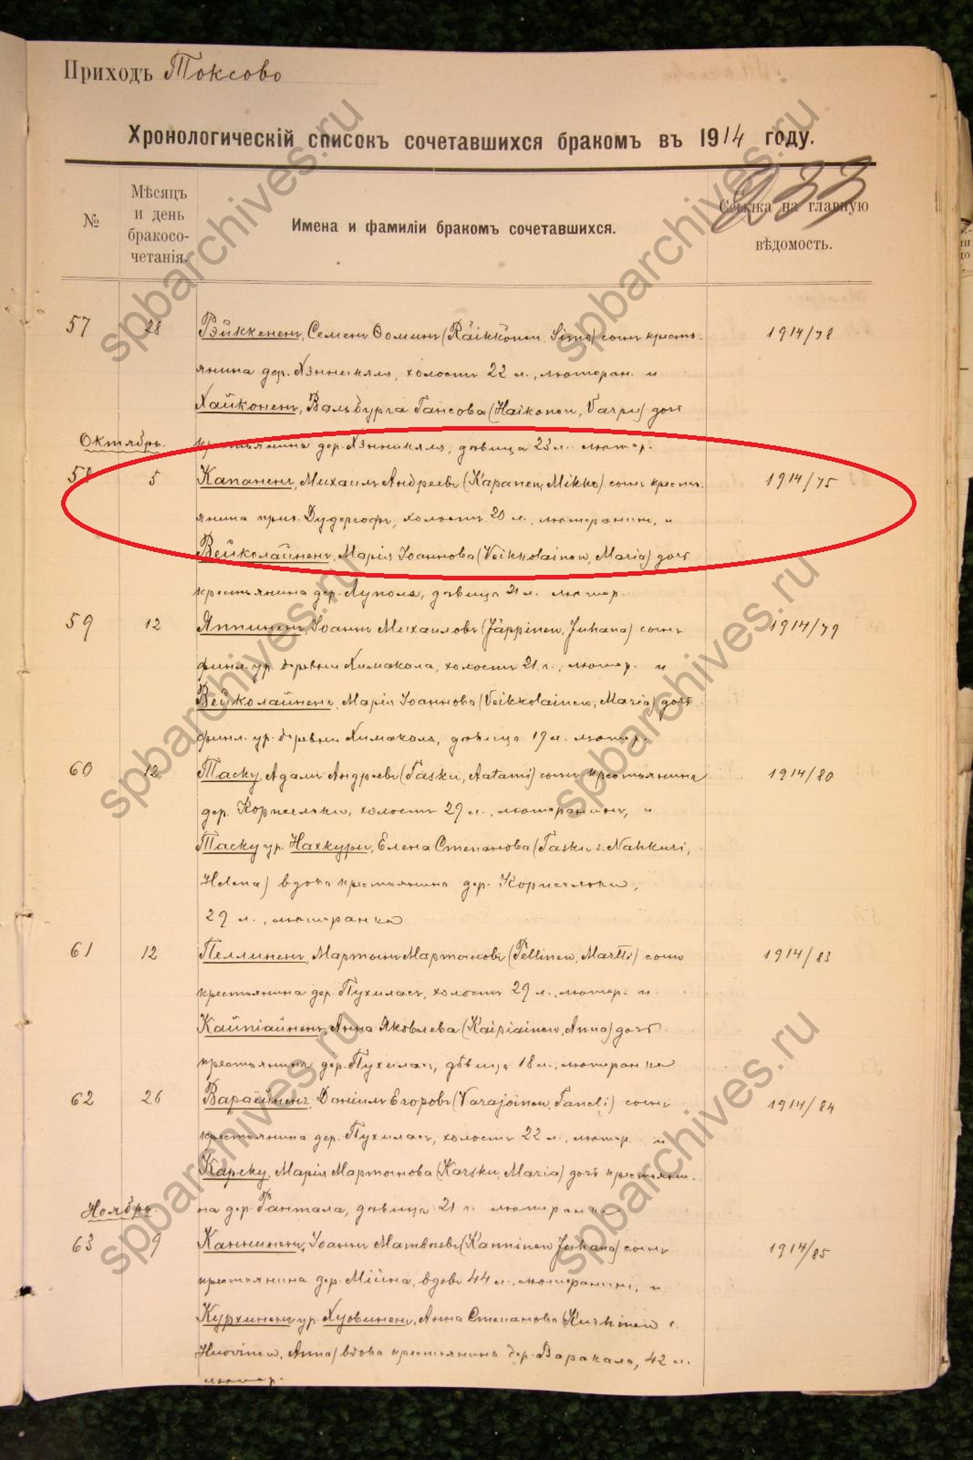 Приходъ Токсово
Хронологическій списокъ сочетавшихся бракомъ въ 1914 году.
233
№
Мѣсяцъ и день бракосо-четанія.
Имена и фамиліи бракомъ сочетавшихся.
Ссылка на главную вѣдомость.
57 28 Рэйккененъ, Семенъ Ѳоминъ (Räikkönen, Simo) сынъ кресть- 1914/78
янина дер. Хэнникяля, холостъ 22 л., лютеран. и
Хайконенъ, Вальбурга Гансова (Haikonen, Varpu) дочь
Октябрь.
крестьянина дер. Хэнникяля, дѣвица 23 л. лютер.
58 5 Капаненъ, Михаилъ Андреевъ (Kapanen, Mikko) сынъ кресть- 1914/75
янина прих. Дудергофъ, холостъ 20 л., лютеранинъ, и
Вейколайненъ, Марія Іоаннова (Veikkolainen, Maria) дочь
крестьянина дер. Лупола, дѣвица 21 л. лютер.
59 12 Яппиненъ, Іоаннъ Михаиловъ (Jäppinen, Juhana) сынъ 1914/79
финл. ур. деревни Химакола, холостъ 21 г., лютер. и
Вейколайненъ, Марія Іоаннова (Veikkolainen, Maria) дочь
финл. ур. деревни Химакола, дѣвица 19 л. лютер.
60 12 Таску, Адамъ Андреевъ (Tasku, Aatami) сынъ крестьянина 1914/80
дер. Корписельки, холостъ 29 л., лютеранинъ, и
Таску ур. Нахкури, Елена Степанова (Tasku s. Nahkuri,
Helena) вдова крестьянина дер. Корписельки,
29 л., лютеранка
61 12 Пеллиненъ, Мартынъ Мартыновъ (Pellinen, Martti) сынъ 1914/83
крестьянина дер. Пухиласъ, холостъ 29 л., лютер. и
Кайпіайненъ, Анна Яковлева (Kaipiainen, Anna) дочь
крестьянина дер. Пухиласъ, дѣвица 18 л., лютеранка
62 26 Варайненъ, Даніилъ Егоровъ (Varajoinen, Taneli) сынъ 1914/84
крестьянина дер. Пухиласъ, холостъ 22 л., лютер. и
Карску, Марія Мартынова (Karsku, Maria) дочь крестьяни-
Ноябрь.
на дер. Рантала, дѣвица 21 г. лютеранка
63 9 Канниненъ, Іоаннъ Матвѣевъ (Kanninen Juhana) сынъ 1914/85
крестьянина дер. Мійна, вдовъ 44 л., лютеранинъ, и
Курхиненъ ур. Хуовиненъ, Анна Степанова (Kurhinen s.
Huovinen, Anna) вдова крестьянина дер. Варкала, 42 л.
лютер.
spbarchives.ru
spbarchives.ru
spbarchives.ru
spbarchives.ru
spbarchives.ru
spbarchives.ru